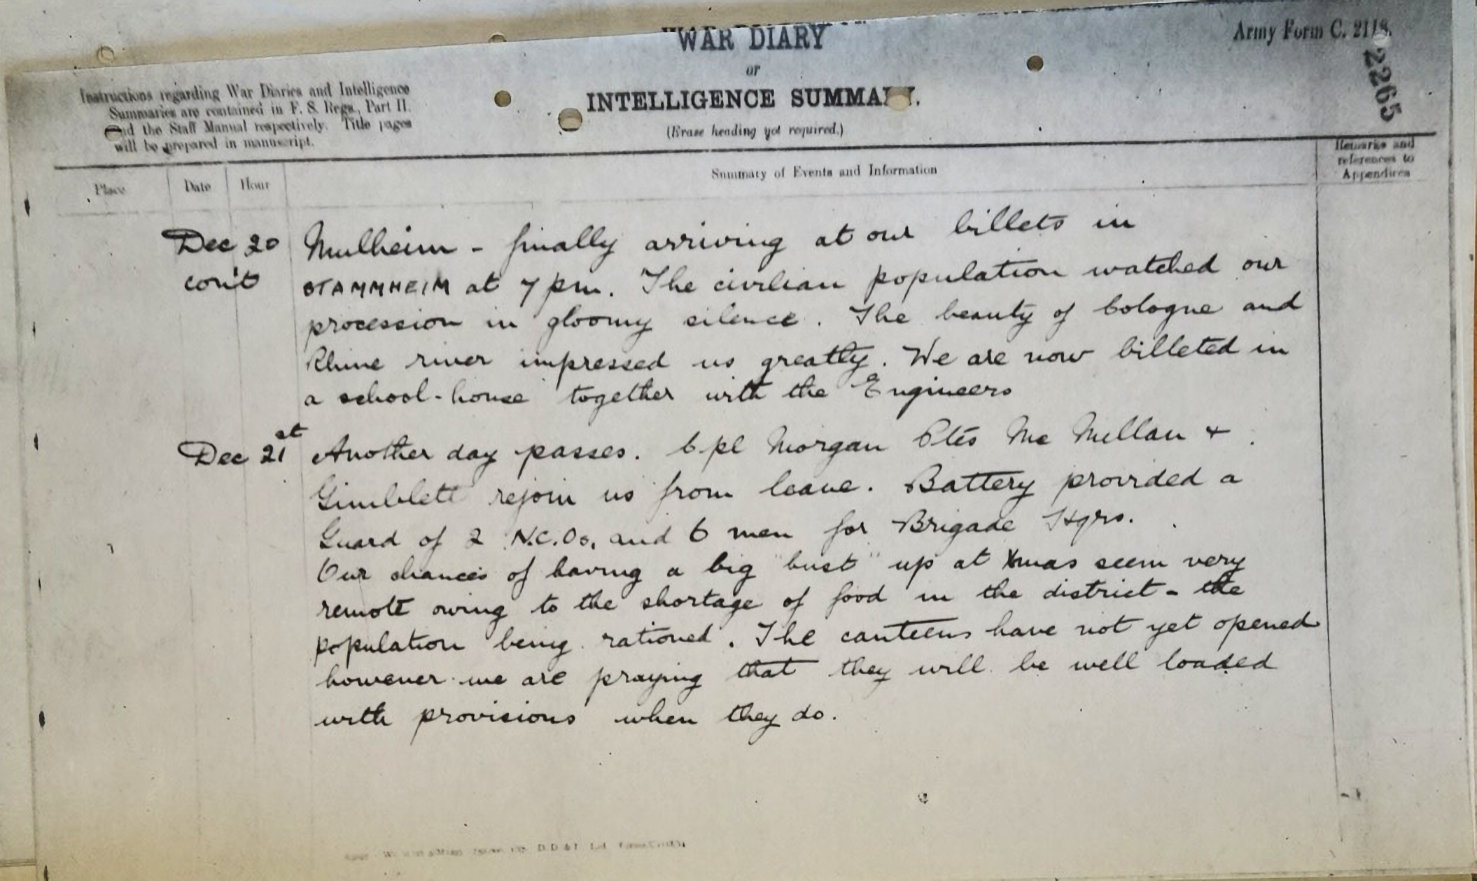 WAR DIARY
or
INTELLIGENCE SUMMARY.
(Erase heading not required.)
Army Form C. 2118.
2265
Instructions regarding War Diaries and Intelligence
Summaries are contained in F. S. Regs., Part II.
and the Staff Manual respectively. Title pages
will be prepared in manuscript.
Place
Date
Hour
Summary of Events and Information
Remarks and
references to
Appendices
Dec 20 Mulheim - finally arriving at our billets in
con't STAMMHEIM at 7 pm. The civilian population watched our
procession in gloomy silence. The beauty of Cologne and
Rhine river impressed us greatly. We are now billeted in
a school-house together with the Engineers
Dec 21st Another day passes. Cpl Morgan Ptes Mc Millan +
Gimblett rejoin us from leave. Battery provided a
Guard of 2 N.C.Os, and 6 men for Brigade Hqrs.
Our chances of having a big "bust" up at Xmas seem very
remote owing to the shortage of food in the district - the
population being rationed. The canteens have not yet opened
however we are praying that they will be well loaded
with provisions when they do.
D. D. & L.